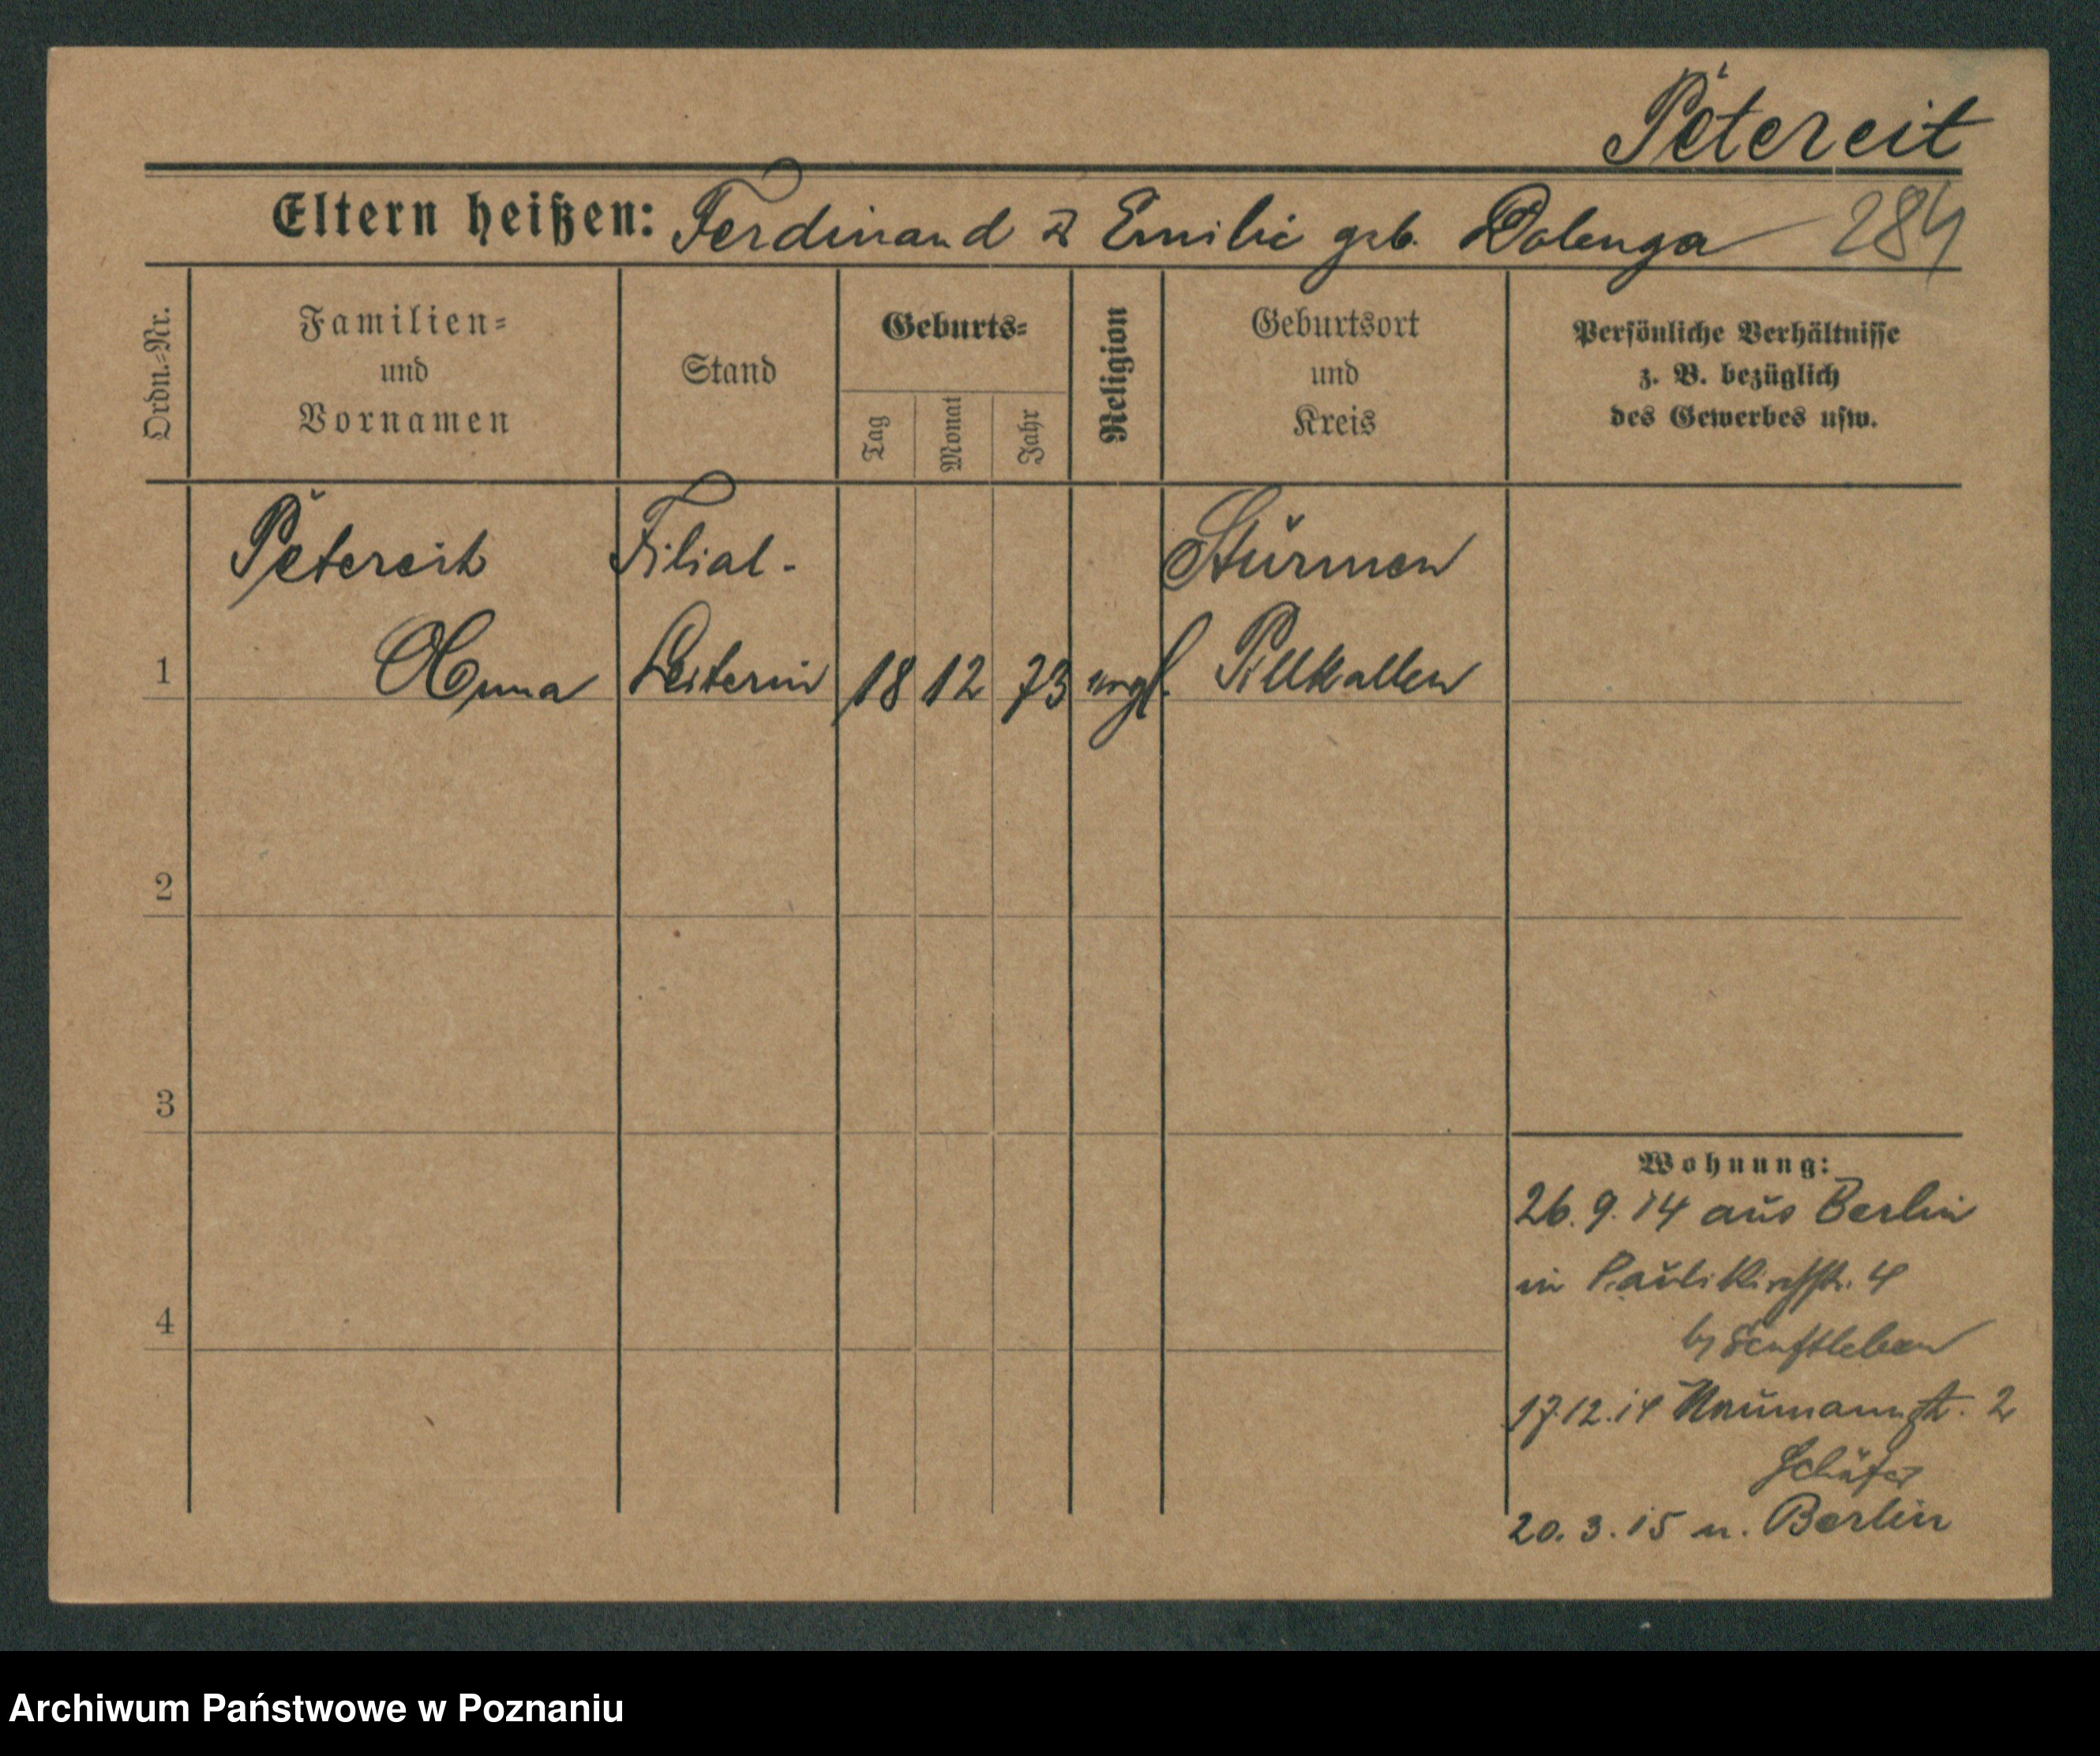 Petereit
Eltern heißen: Ferdinand & Emilie geb. Dolenga 284
Ordn.-Nr.
Familien-
und
Vornamen
Stand
Geburts-
Tag
Monat
Jahr
Religion
Geburtsort
und
Kreis
Persönliche Verhältnisse
z. B. bezüglich
des Gewerbes usw.
Petereit Filial- Stürmen
1 Anna Leiterin 18 12 73 evgl. Pillkallen
2
3
4
Wohnung:
26.9.14 aus Berlin
in Paulikirchstr. 4
b/ Senftleben
17.12.14 Naumannstr. 2
Schäfer
20.3.15 n. Berlin
Archiwum Państwowe w Poznaniu